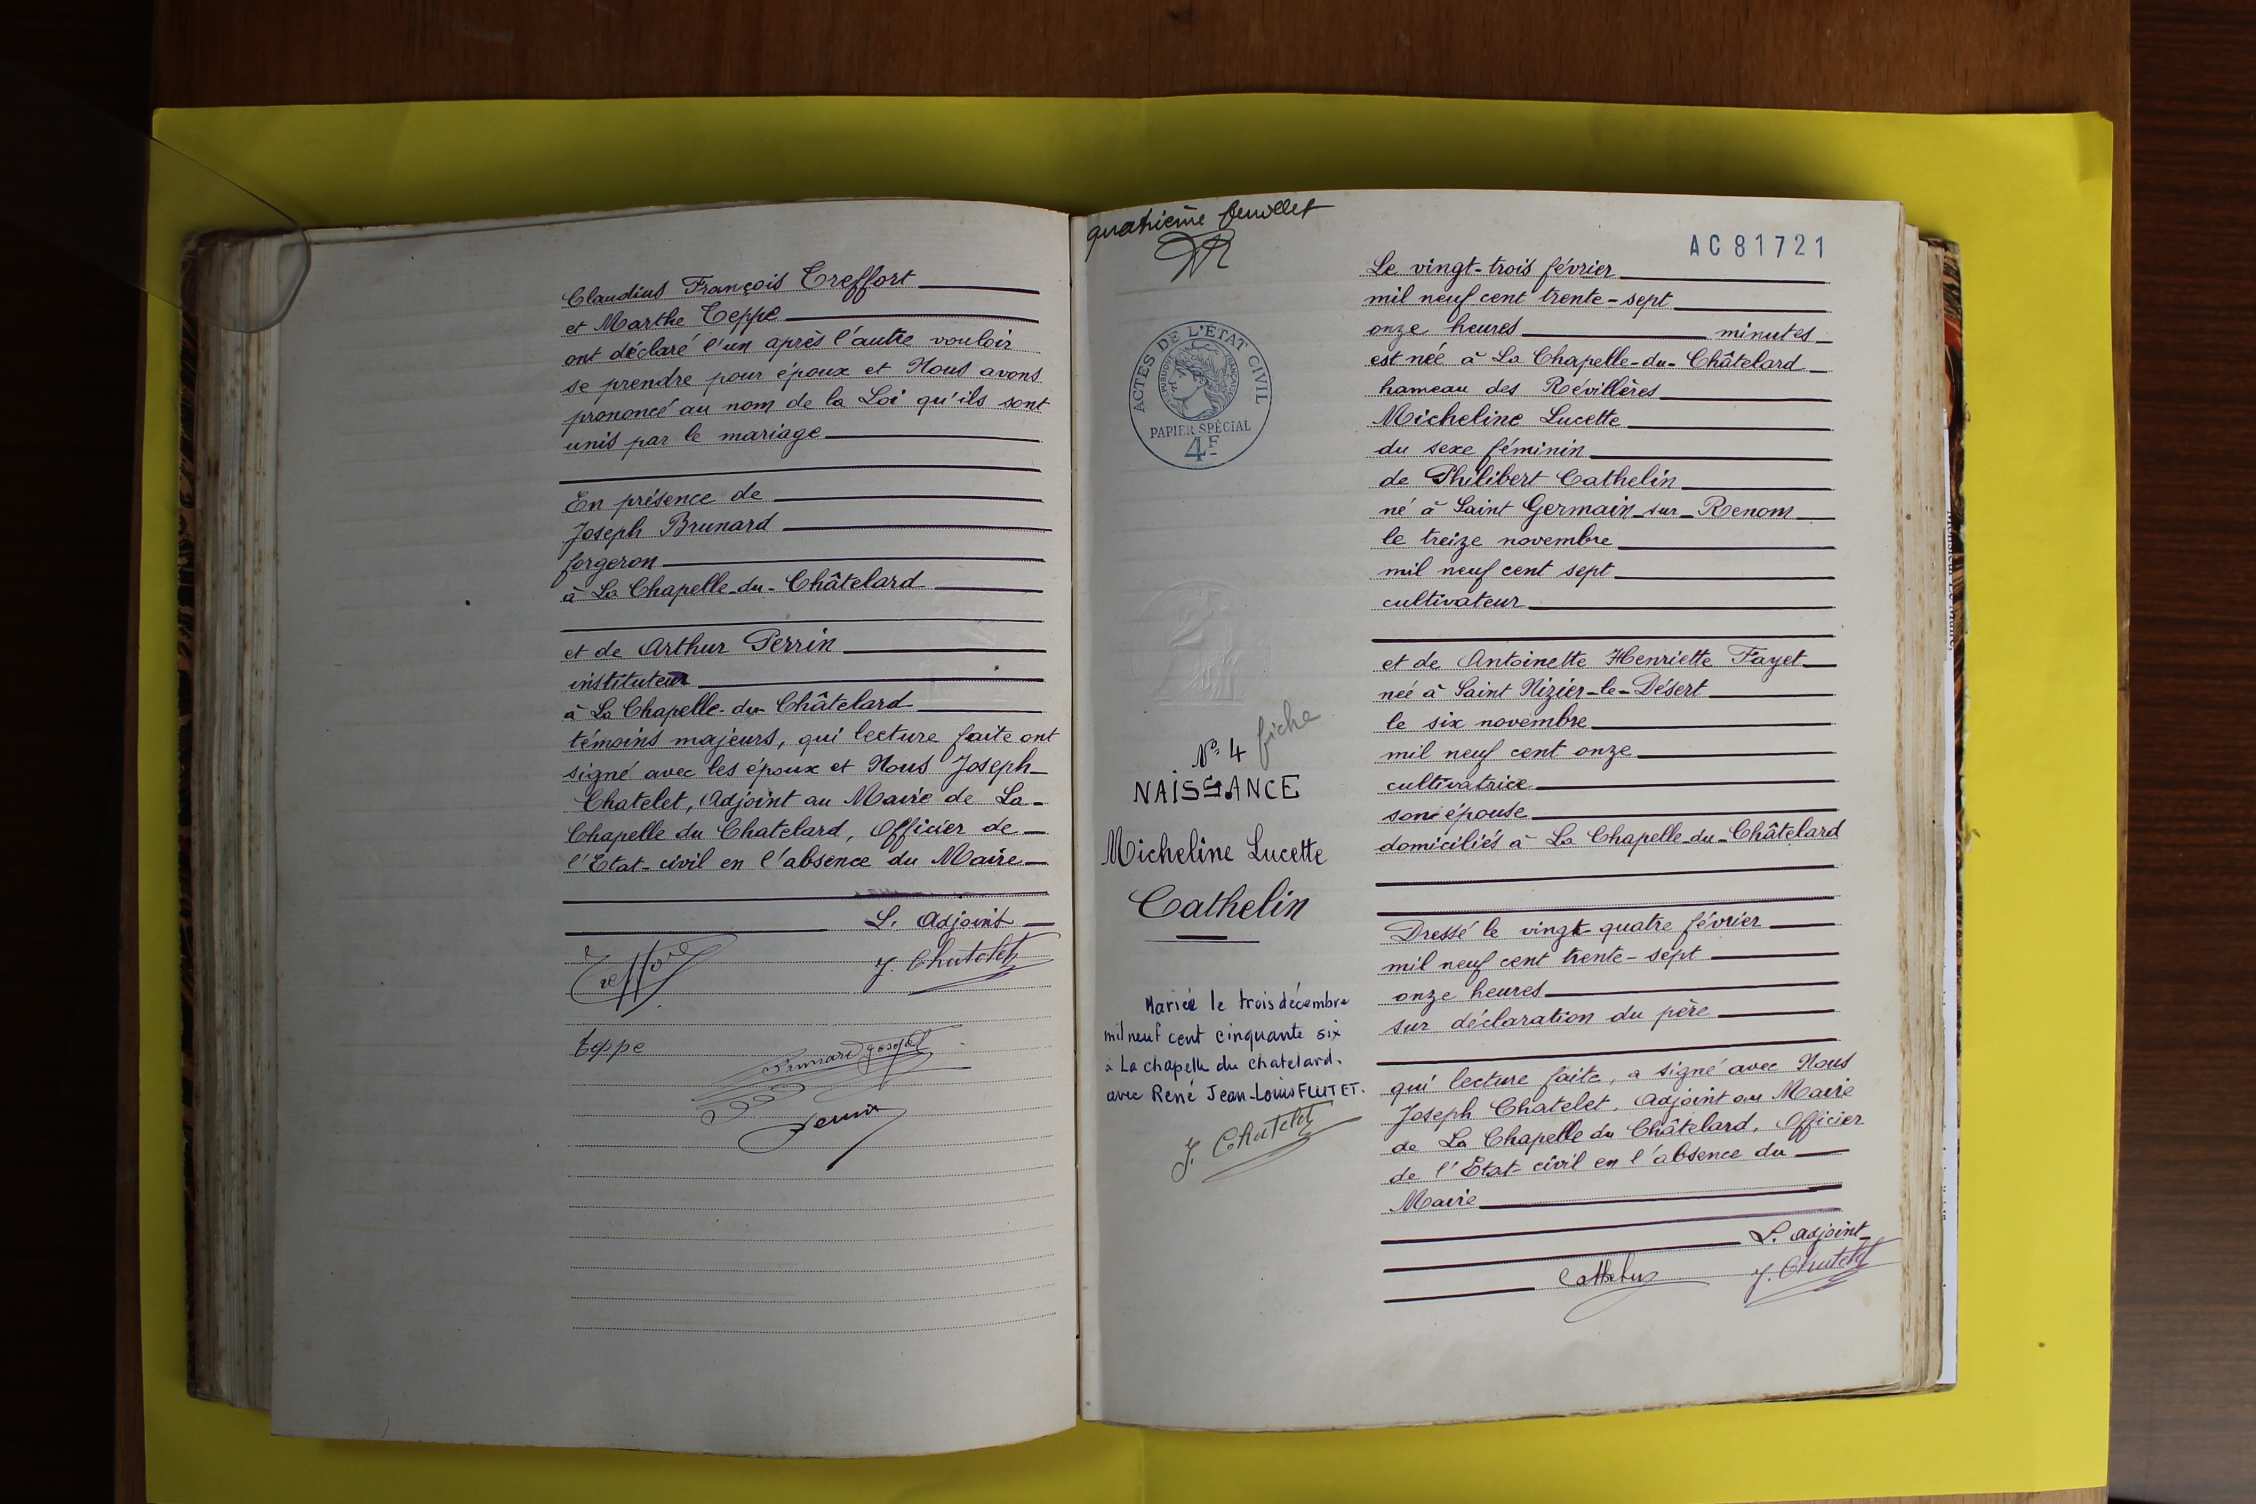 Claudius François Treffort
et Marthe Teppe
ont déclaré l'un après l'autre vouloir
se prendre pour époux et Nous avons
prononcé au nom de la Loi qu'ils sont
unis par le mariage
En présence de
Joseph Brunard
forgeron
à La Chapelle-du-Châtelard
et de Arthur Perrin
instituteur
à La Chapelle-du-Châtelard
témoins majeurs, qui lecture faite ont
signé avec les époux et Nous Joseph
Chatelet, Adjoint au Maire de La
Chapelle du Chatelard, Officier de
l'Etat-civil en l'absence du Maire
L. Adjoint
Treffort
J. Chatelet
Teppe
Brunard Joseph
Perrin
quatrième feuillet
ACTES DE L'ÉTAT CIVIL
RÉPUBLIQUE FRANÇAISE
PAPIER SPÉCIAL
4F
N° 4 fiche
NAISSANCE
Micheline Lucette
Cathelin
Mariée le trois décembre
mil neuf cent cinquante six
à La chapelle du chatelard.
avec René Jean-Louis FLUTET.
J. Chatelet
AC81721
Le vingt-trois février
mil neuf cent trente-sept
onze heures minutes
est née à La Chapelle-du-Châtelard
hameau des Révillères
Micheline Lucette
du sexe féminin
de Philibert Cathelin
né à Saint Germain-sur-Renom
le treize novembre
mil neuf cent sept
cultivateur
et de Antoinette Henriette Fayet
née à Saint Nizier-le-Désert
le six novembre
mil neuf cent onze
cultivatrice
son épouse
domiciliés à La Chapelle-du-Châtelard
Dressé le vingt-quatre février
mil neuf cent trente-sept
onze heures
sur déclaration du père
qui lecture faite, a signé avec Nous
Joseph Chatelet, Adjoint au Maire
de La Chapelle du Châtelard, Officier
de l'Etat-civil en l'absence du
Maire
L. Adjoint
Cathelin
J. Chatelet